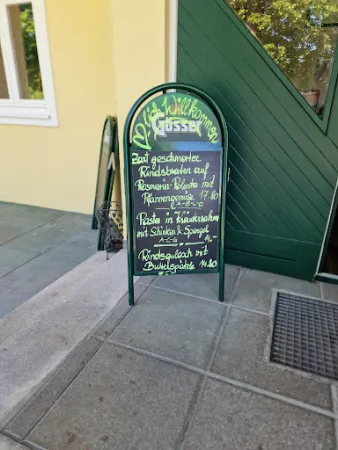 Herzlich Willkommen
Gösser
Zart geschmorter
Rindsbraten auf
Rosmarin-Polenta mit
Pfannengemüse 17.80
A-C-G
Pasta in Kräuterrahm
mit Schinken & Spargel
A-C-G 14,-
Rindsgulasch mit
Butterspätzle 14.80